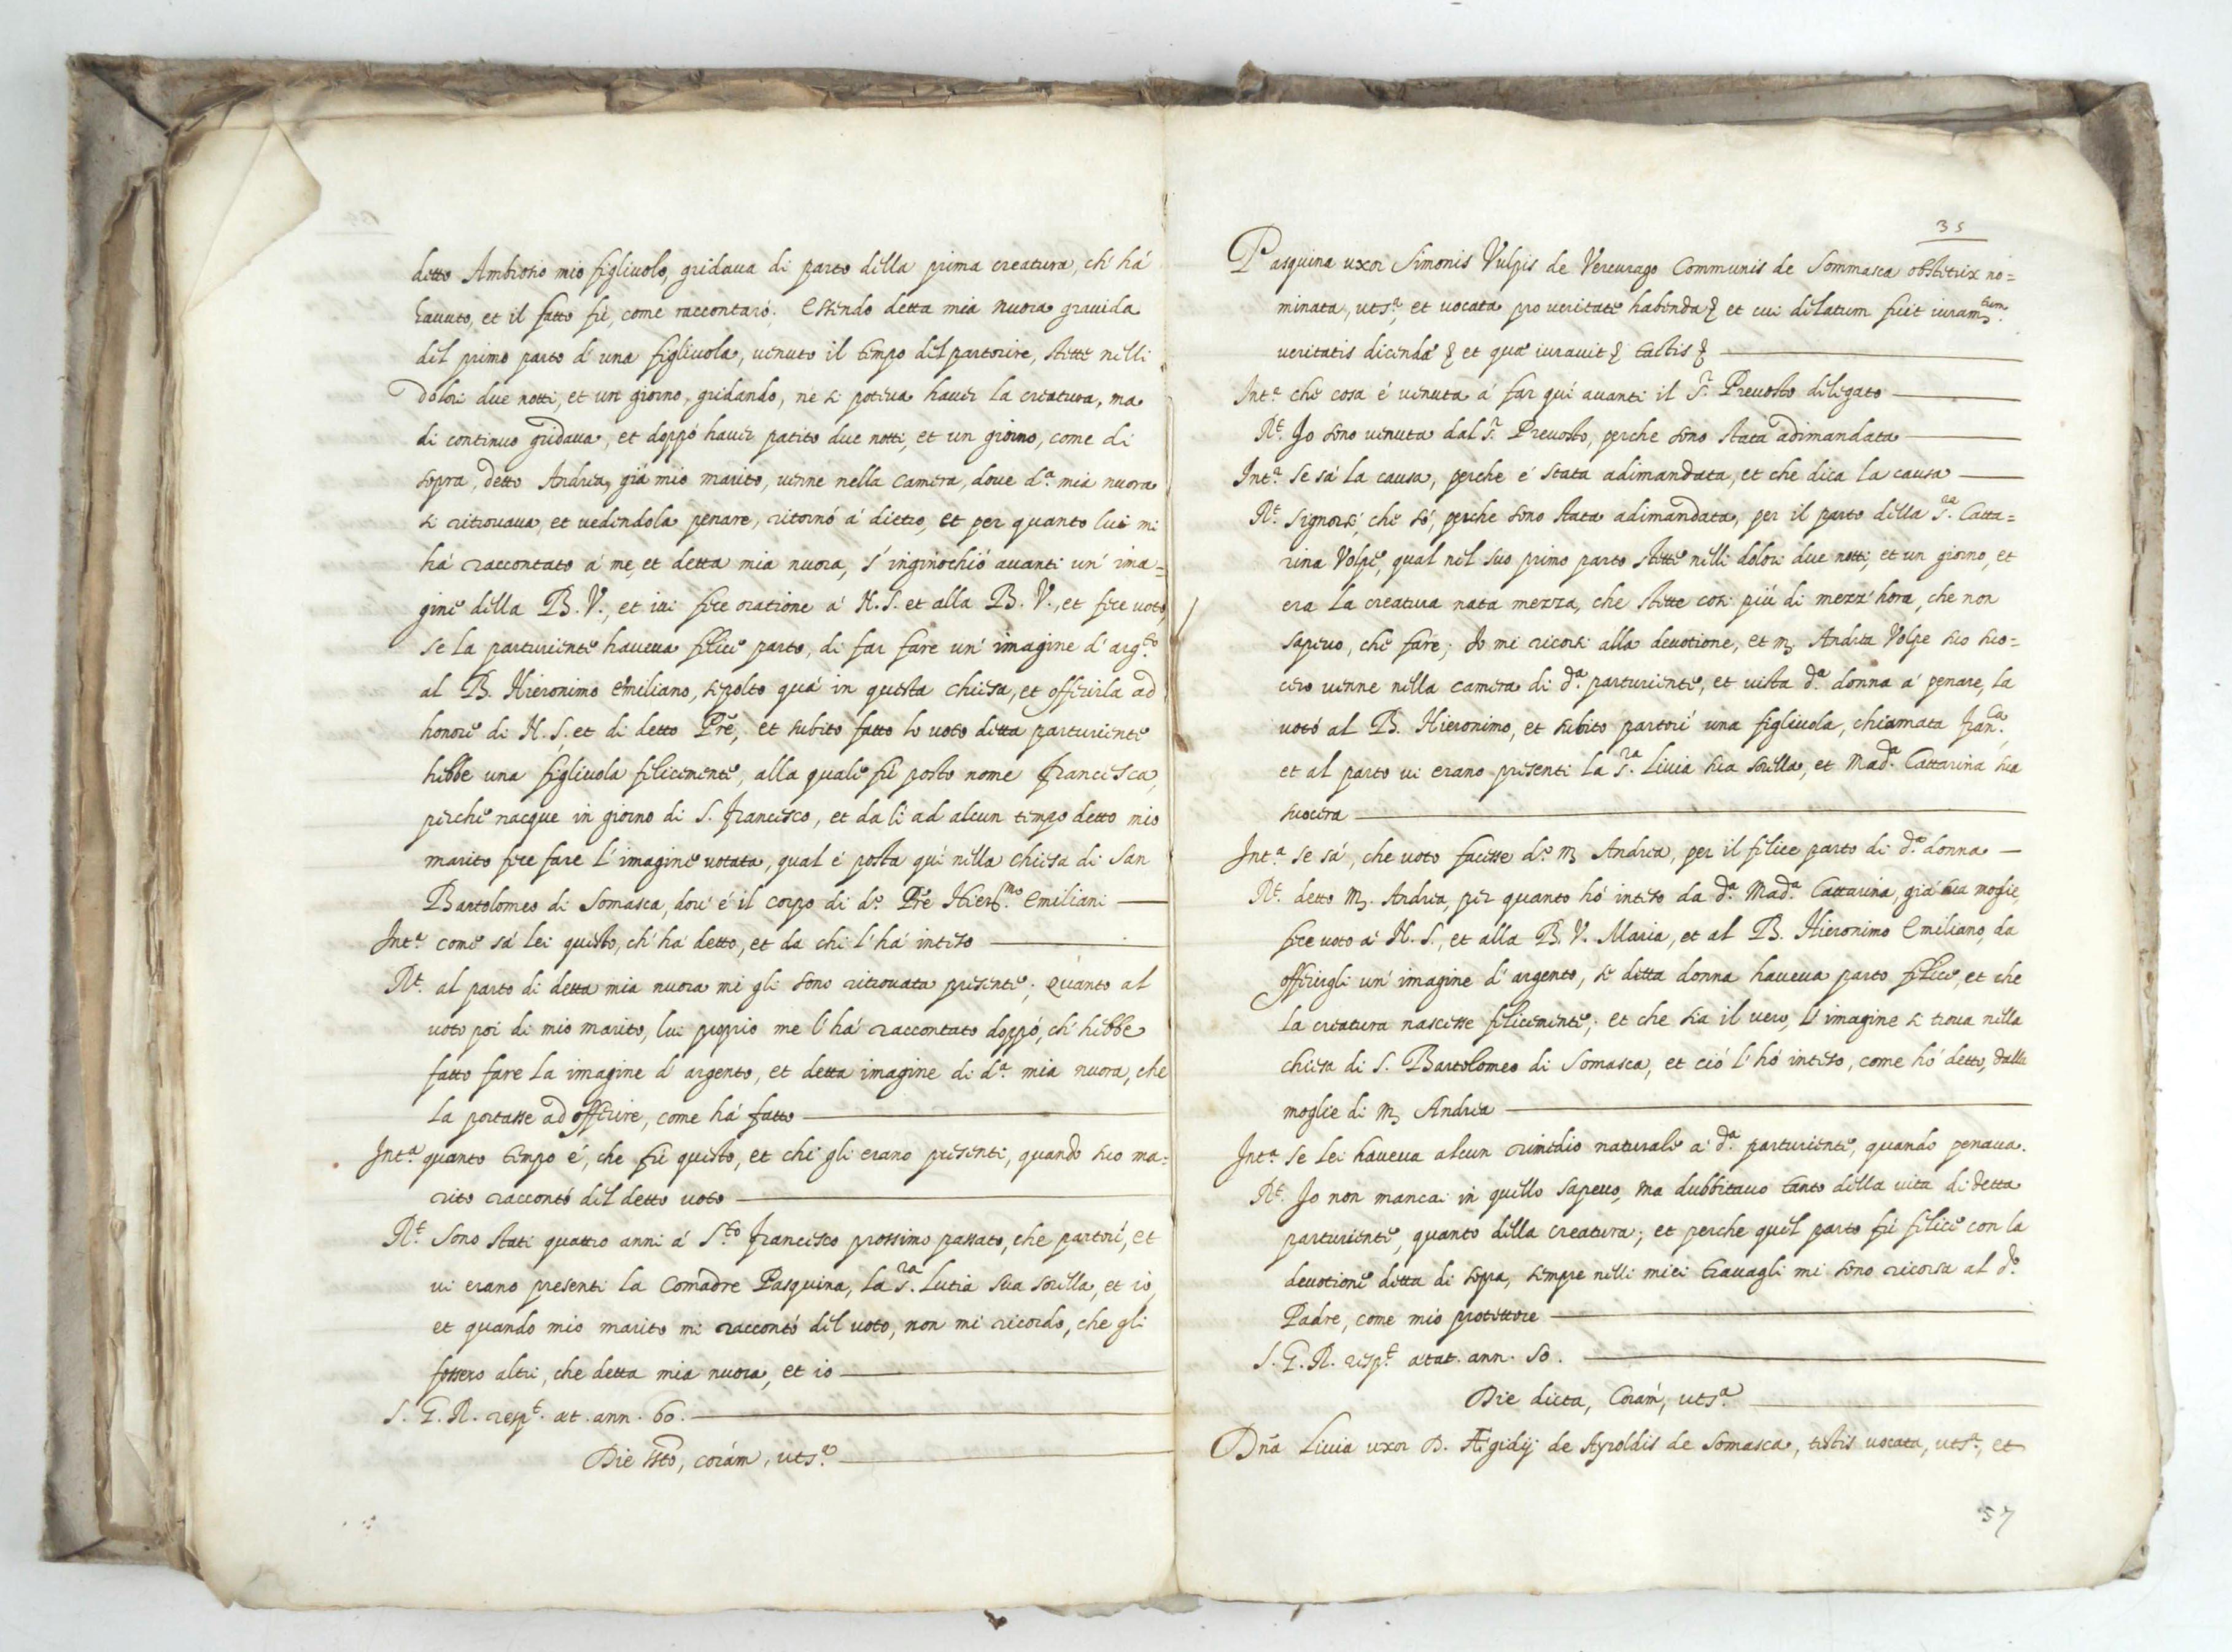 detto Ambrosio mio figliuolo, gridaua di parto della prima creatura, ch' há
hauuto, et il fatto fú, come raccontaró. Essendo detta mia nuora grauida
del primo parto d' una figliuola, uenuto il tempo del partorire, stette nelli
dolori due notti, et un giorno, gridando, ne si poteua hauer la creatura, ma
di continuo gridaua, et doppó hauer patito due notti, et un giorno, come di
sopra, detto Andrea, giá mio marito, uenne nella camera, doue d.ª mia nuora
si ritrouaua, et uedendola penare, ritornó á dietro, et per quanto lui mi
há raccontato á me, et detta mia nuora, s' inginochió auanti un' ima=
gine della B. V., et iui fece oratione á N. S. et alla B. V., et fece uoto,
se la parturiente haueua felice parto, di far fare un' imagine d' arg.to
al B. Hieronimo Emiliano, sepolto quá in questa chiesa, et offerirla ad
honore di N. S. et di detto Pre, et subito fatto lo uoto detta parturiente
hebbe una figliuola felicemente, alla quale fú posto nome Francesca,
perche nacque in giorno di S. Francesco, et da lí ad alcun tempo detto mio
marito fece fare l' imagine uotata, qual é posta qui nella chiesa di San
Bartolomeo di Somasca, dou' é il corpo di d.º Pre Hier.mo Emiliani
Int.ª come sá lei questo, ch' há detto, et da chi l' há inteso
R.t al parto di detta mia nuora mi gli sono ritrouata presente; Quanto al
uoto poi di mio marito, lui proprio me l' há raccontato doppó, ch' hebbe
fatto fare la imagine d' argento, et detta imagine di d.ª mia nuora, che
la portasse ad offerire, come há fatto
Int.ª quanto tempo é, che fú questo, et chi gli erano presenti, quando suo ma=
rito raccontó del detto uoto
R.t Sono stati quattro anni á S.to Francesco prossimo passato, che partorí, et
ui erano presenti la Comadre Pasquina, la S.ra Lutia sua sorella, et io,
et quando mio marito mi raccontó del uoto, non mi ricordo, che gli
fossero altri, che detta mia nuora, et io
S. G. R. resp.t æt. ann. 60.
Die , corám, uts.ª
35
Pasquina uxor Simonis Vulpis de Vercurago Communis de Sommasca obstetrix no=
minata, uts.ª, et uocata pro ueritate habenda et cui delatum fuit iuram.tum
ueritatis dicendæ et quæ iurauit tactis
Int.ª che cosa é uenuta á far quí auanti il S.r Preuosto delegato
R.t Jo sono uenuta dal S.r Preuosto, perche sono stata adimandata
Int.ª se sá la causa, perche é stata adimandata, et che dica la causa
R.t Signorsí che só, perche sono stata adimandata, per il parto della S.ra Catta=
rina Volpe, qual nel suo primo parto stette nelli dolori due notti, et un giorno, et
era la creatura nata mezza, che stette cosi piú di mezz' hora, che non
sapeuo, che fare; Jo mi ricorsi alla deuotione, et m. Andrea Volpe suo suo=
cero uenne nella camera di d.ª parturiente, et uista d.ª donna á penare, la
uotó al B. Hieronimo, et subito partorí una figliuola, chiamata Fran.ca,
et al parto ui erano presenti la S.ra Liuia sua sorella, et Mad.ª Cattarina sua
suocera
Int.ª se sá, che uoto facesse d.º m. Andrea, per il felice parto di d.ª donna
R.t detto m. Andrea, per quanto hó inteso da d.ª Mad.ª Cattarina, giá sua moglie,
fece uoto á N. S., et alla B. V. Maria, et al B. Hieronimo Emiliano, da
offerirgli un' imagine d' argento, se detta donna haueua parto felice, et che
la creatura nascesse felicemente; et che sia il uero, l' imagine si troua nella
chiesa di S. Bartolomeo di Somasca, et ció l' hó inteso, come hó detto, dalla
moglie di m. Andrea
Int.ª se lei haueua alcun rimedio naturale á d.ª parturiente, quando penaua.
R.t Jo non mancai in quello sapeuo, ma dubbitauo tanto della uita di detta
parturiente, quanto della creatura; et perche quel parto fú felice con la
deuotione detta di sopra, sempre nelli miei trauagli mi sono ricorsa al d.º
Padre, come mio protettore
S. G. R. resp.t ætat. ann. 50.
Die dicta, Corám, uts.ª
Dña Liuia uxor D. Ægidij de Ayroldis de Somasca, testis uocata, uts.ª, et
57